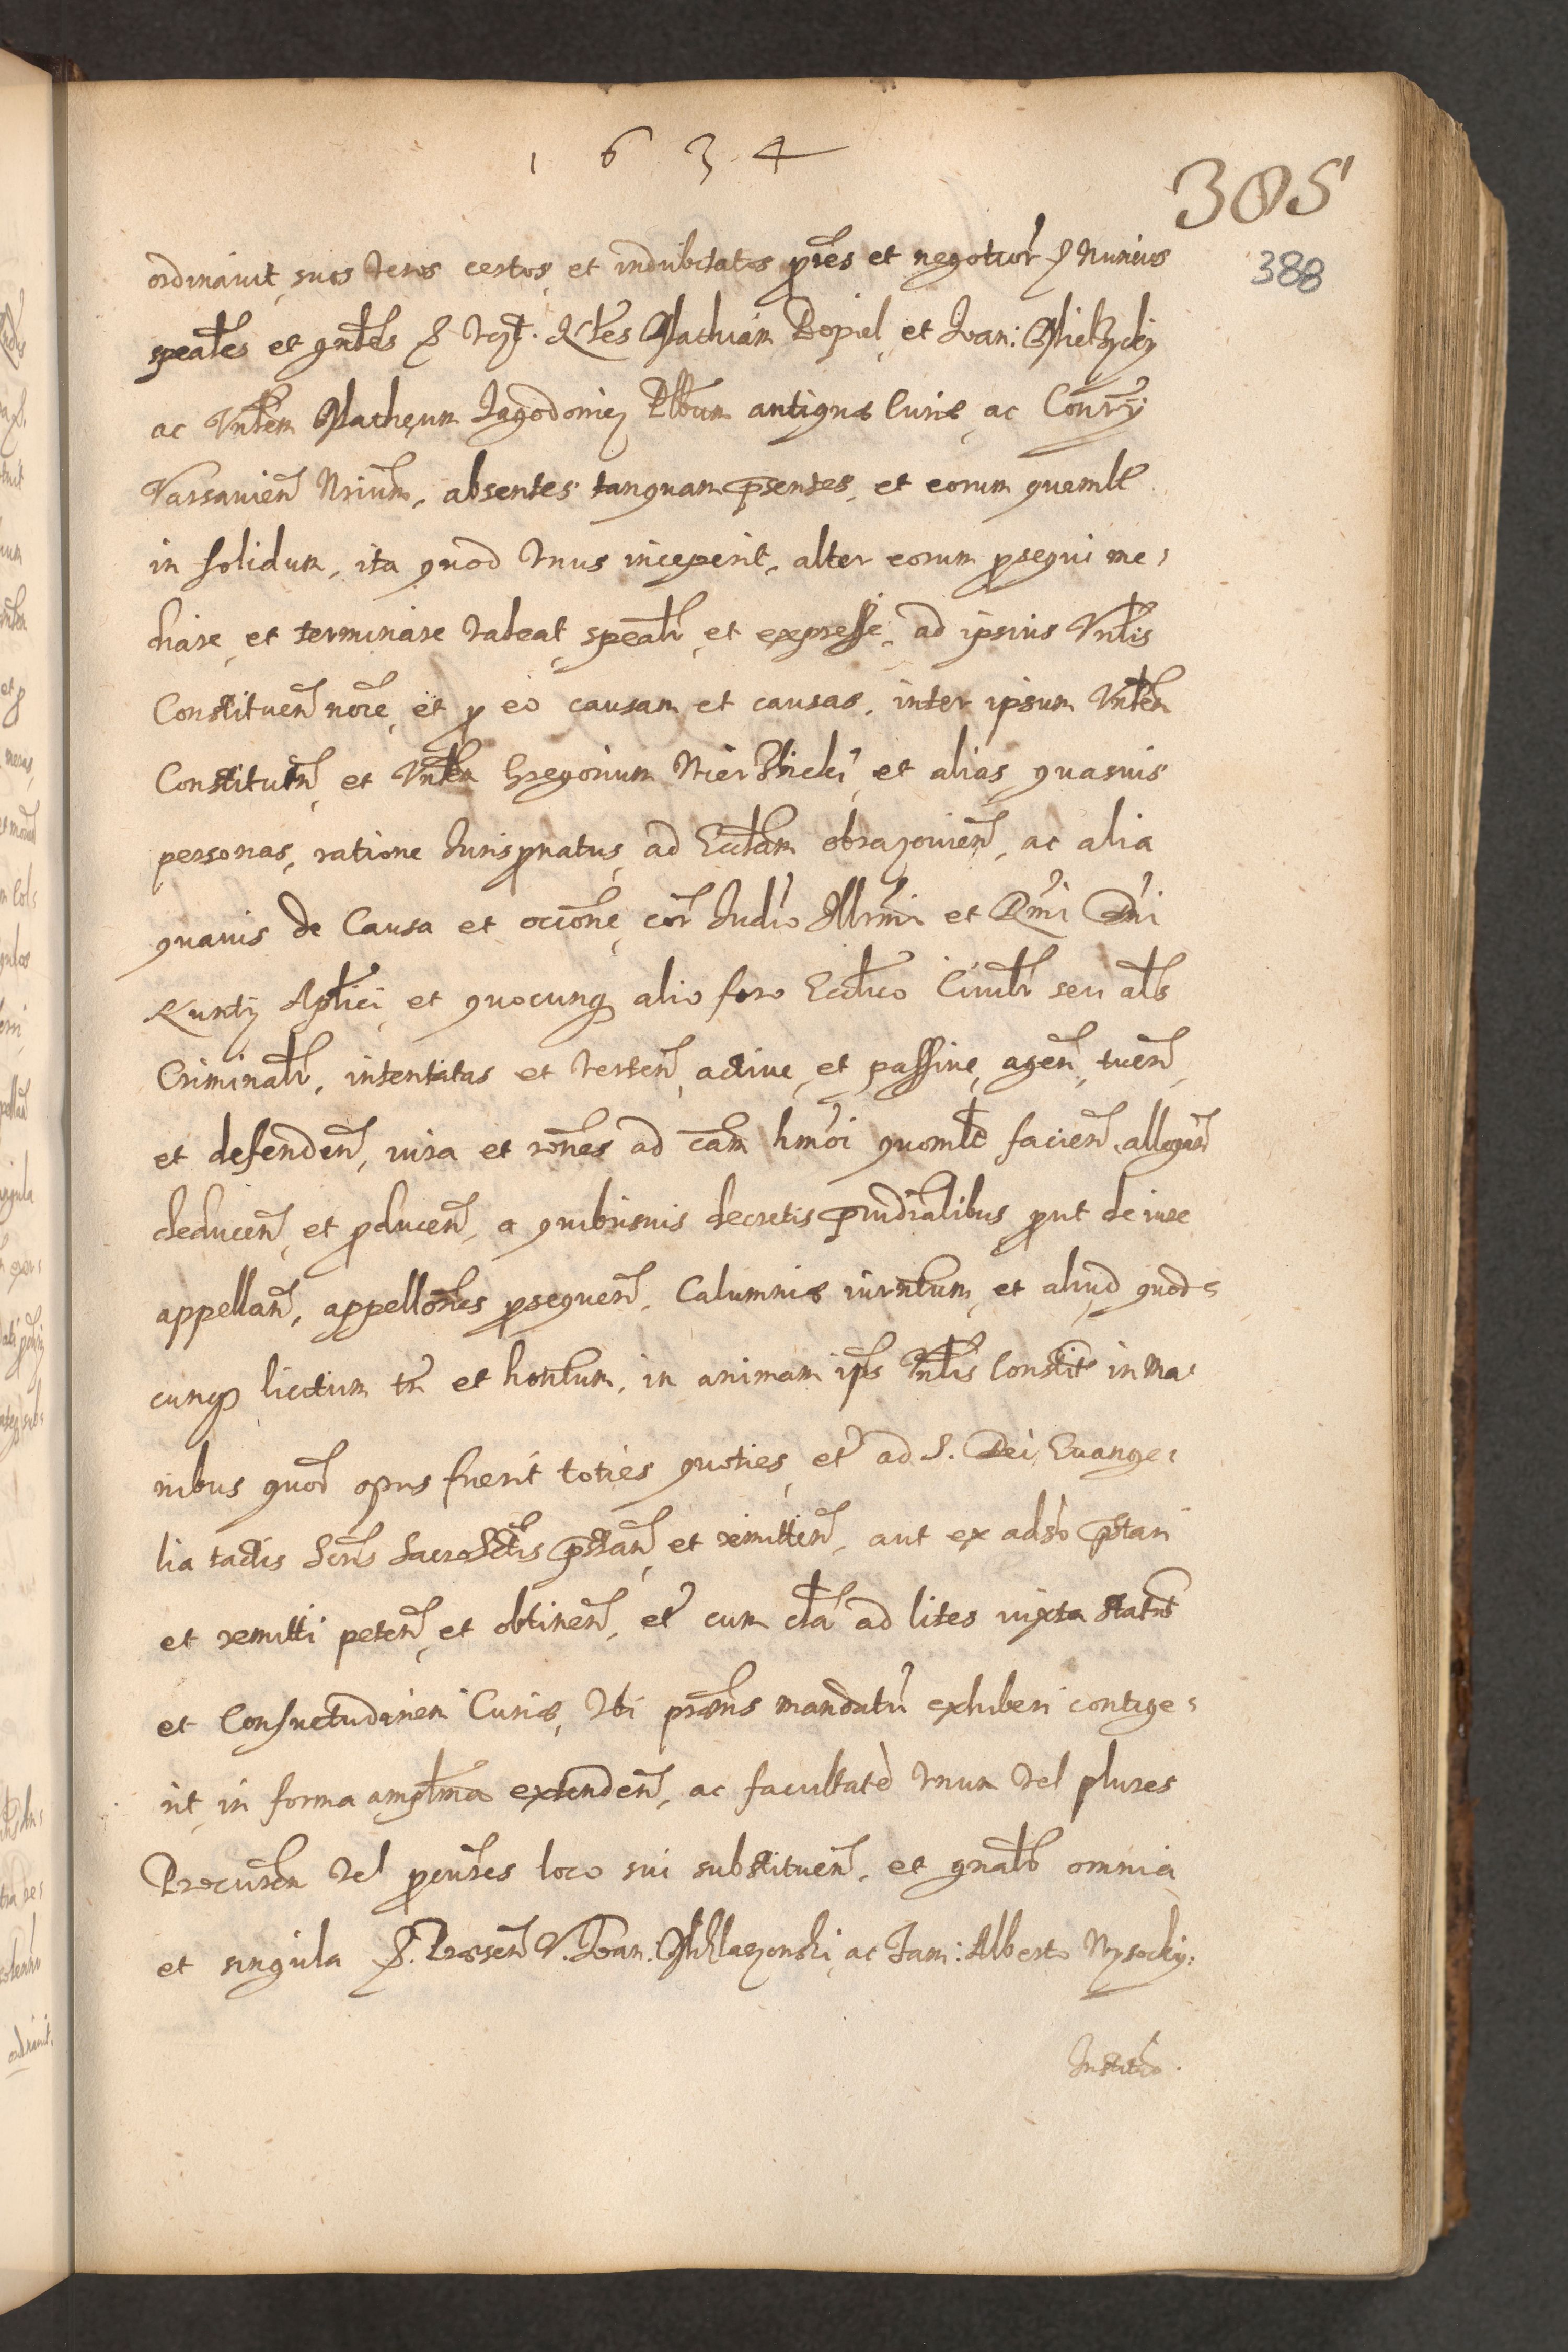 1634
305
388
ordinavit, suos veros certos, et indubitatos pres et negotior
speales et gnales Mathiam Popiel, et Joan:
ac Vnlem Matheum Jagodowicz Plbum antiquae Curiae, ac
Varsavien absentes tanquam psentes, et eorum quemlt
in solidum, ita quod vnus inceperit, alter eorum psequi me,
diare, et terminare valeat, spealr, et expresse, ad ipsius Vnlis
Constituen nore, et p eo causam et causas, inter ipsum Vnlem
Constituen, et Vnlem Gregorium et alias quasuis
personas, ratione Jurispnatus, ad Eccliam obrazouien, ac alia
quauis de Causa et occone, cor Judio Illrmi et Rmi Dni
Nuntij Aplici, et quocunq alio foro Ecclico Ciuilr seu als
Criminalr, intentatas et verten, actiue, et passiue, agen, tuen,
et defenden, iura et rones ad cam hmoi quomlt facien, allegan
deducen, et pducen, a quibusuis decretis piudicialibus put de iure
appellan, appellones psequen, Calumniae iurntum, et aliud quod=
cunq licitum tn et hontum, in animam ips Vnlis Constit in ma,
nibus quor opus fuerit toties quoties, et ad S. Dei, Euange,
lia tactis Scris Sacrosctis pstan, et remitten, aut ex adso pstari
et remitti peten, et obtinen, et cum cla ad lites iuxta statut
et Consuetudinem Curiae, vbi pnsens mandatu exhiberi contige,
rit, in forma amplma extenden, ac facultate vnum vel plures
Procurem vel pcures loco sui substituen, et gnalr omnia
et singula Praesen V. Joan: ac Fam: Alberto Wysocky:
Institutio.